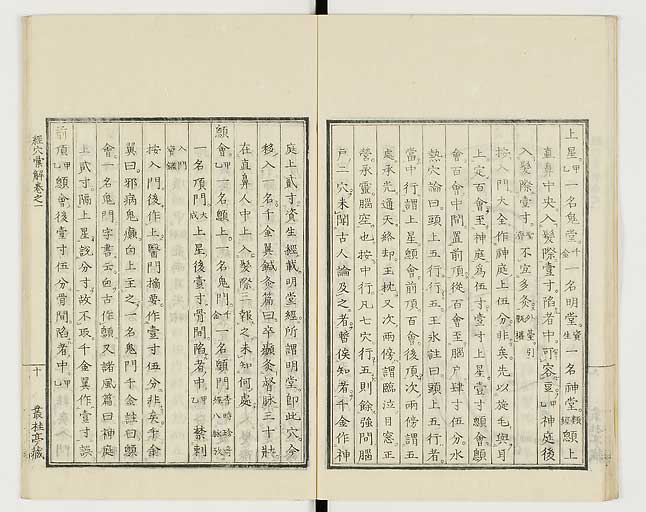 上星甲乙一名鬼堂千金一名明堂資生一名神堂類經顖上
直鼻中央入髮際壹寸陷者中可容豆甲乙神庭後
入髮際壹寸不宜多灸
按入門大全作神庭上伍分非矣先以旋毛與耳
上定百會至神庭爲伍寸壹寸上星壹寸顖會顖
會百會中間置前頂從百會至腦戶肆寸伍分水
熱穴論曰頭上五行行五王氷註曰頭上五行者
當中行謂上星顖會前頂百會後頂次兩傍謂五
處承光通天絡却玉枕又次兩傍謂臨泣目窓正
營承靈腦空也按中行凡七穴行五則餘強間腦
戶二穴未聞古人論及之者暫俟知者千金作神
庭上貳寸資生經載明堂經所謂明堂即此穴今
移入一名千金翼鍼灸篇曰卒癲灸督脉三十壯
在直鼻人中上入髮際三報之未知何處
顖會甲乙一名顖上一名鬼門千金一名顖門
一名頂門大成上星後壹寸骨間陷者中甲乙禁刺
入門
按入門後作上醫門摘要作壹寸伍分非矣千金
翼曰邪病鬼癲向上主之一名鬼門千金註曰顖
會一名鬼門字書云囟古作顖又諸風篇曰神庭
上貳寸隔上星説分寸故不取千金翼作壹寸誤
前頂甲乙顖會後壹寸伍分骨間陷者中甲乙
經穴彙解卷之一
十
叢桂亭藏